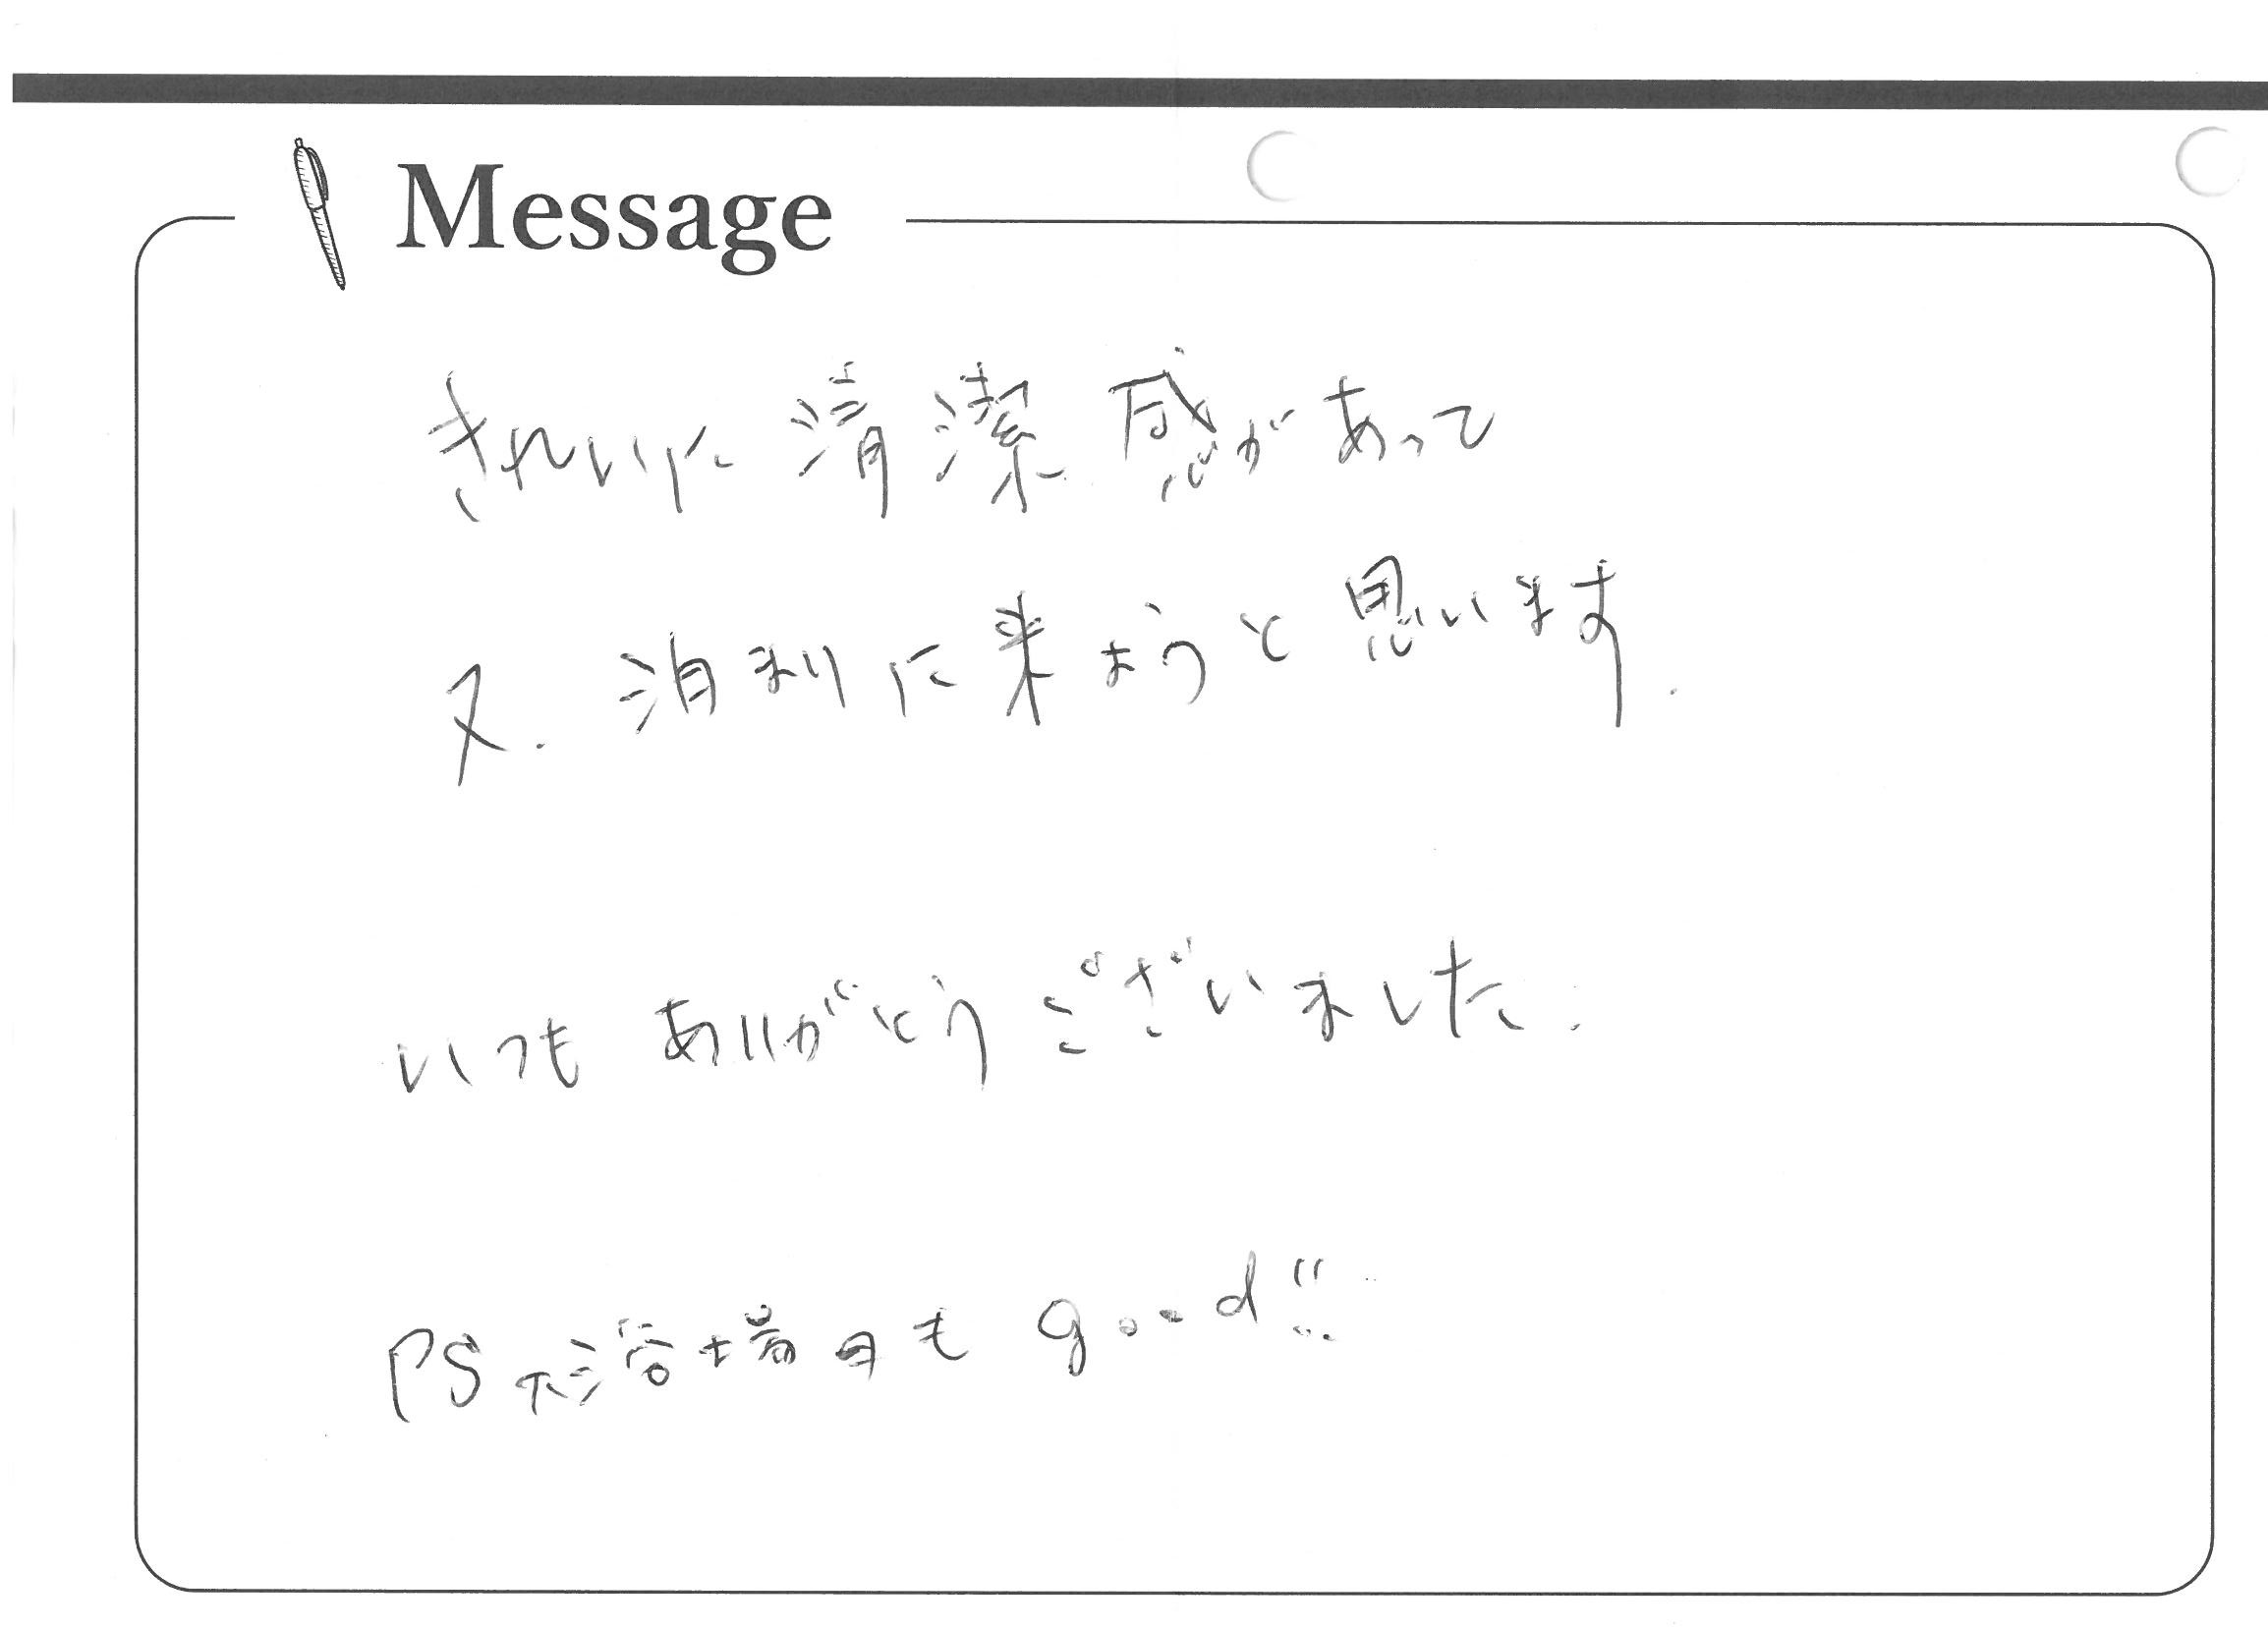 Message
きれいに清潔感があって
又.泊まりに来ようと思います.
いつもありがとうございました.
PS 大浴場も good!!